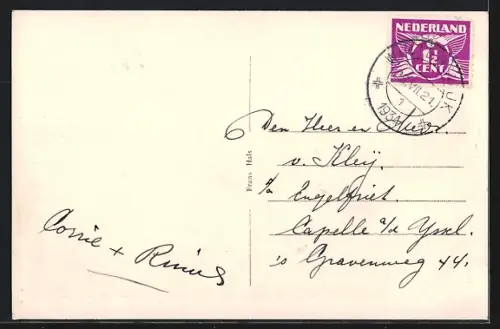 NEDERLAND
1½
CENT
VII.21.
1
1934
Den Heer en Mevr.
v. Kleij.
p/a Engelfriet.
Capelle a/d Yssel.
's Gravenweg 44.
Frans Hals
Corrie + Rinus